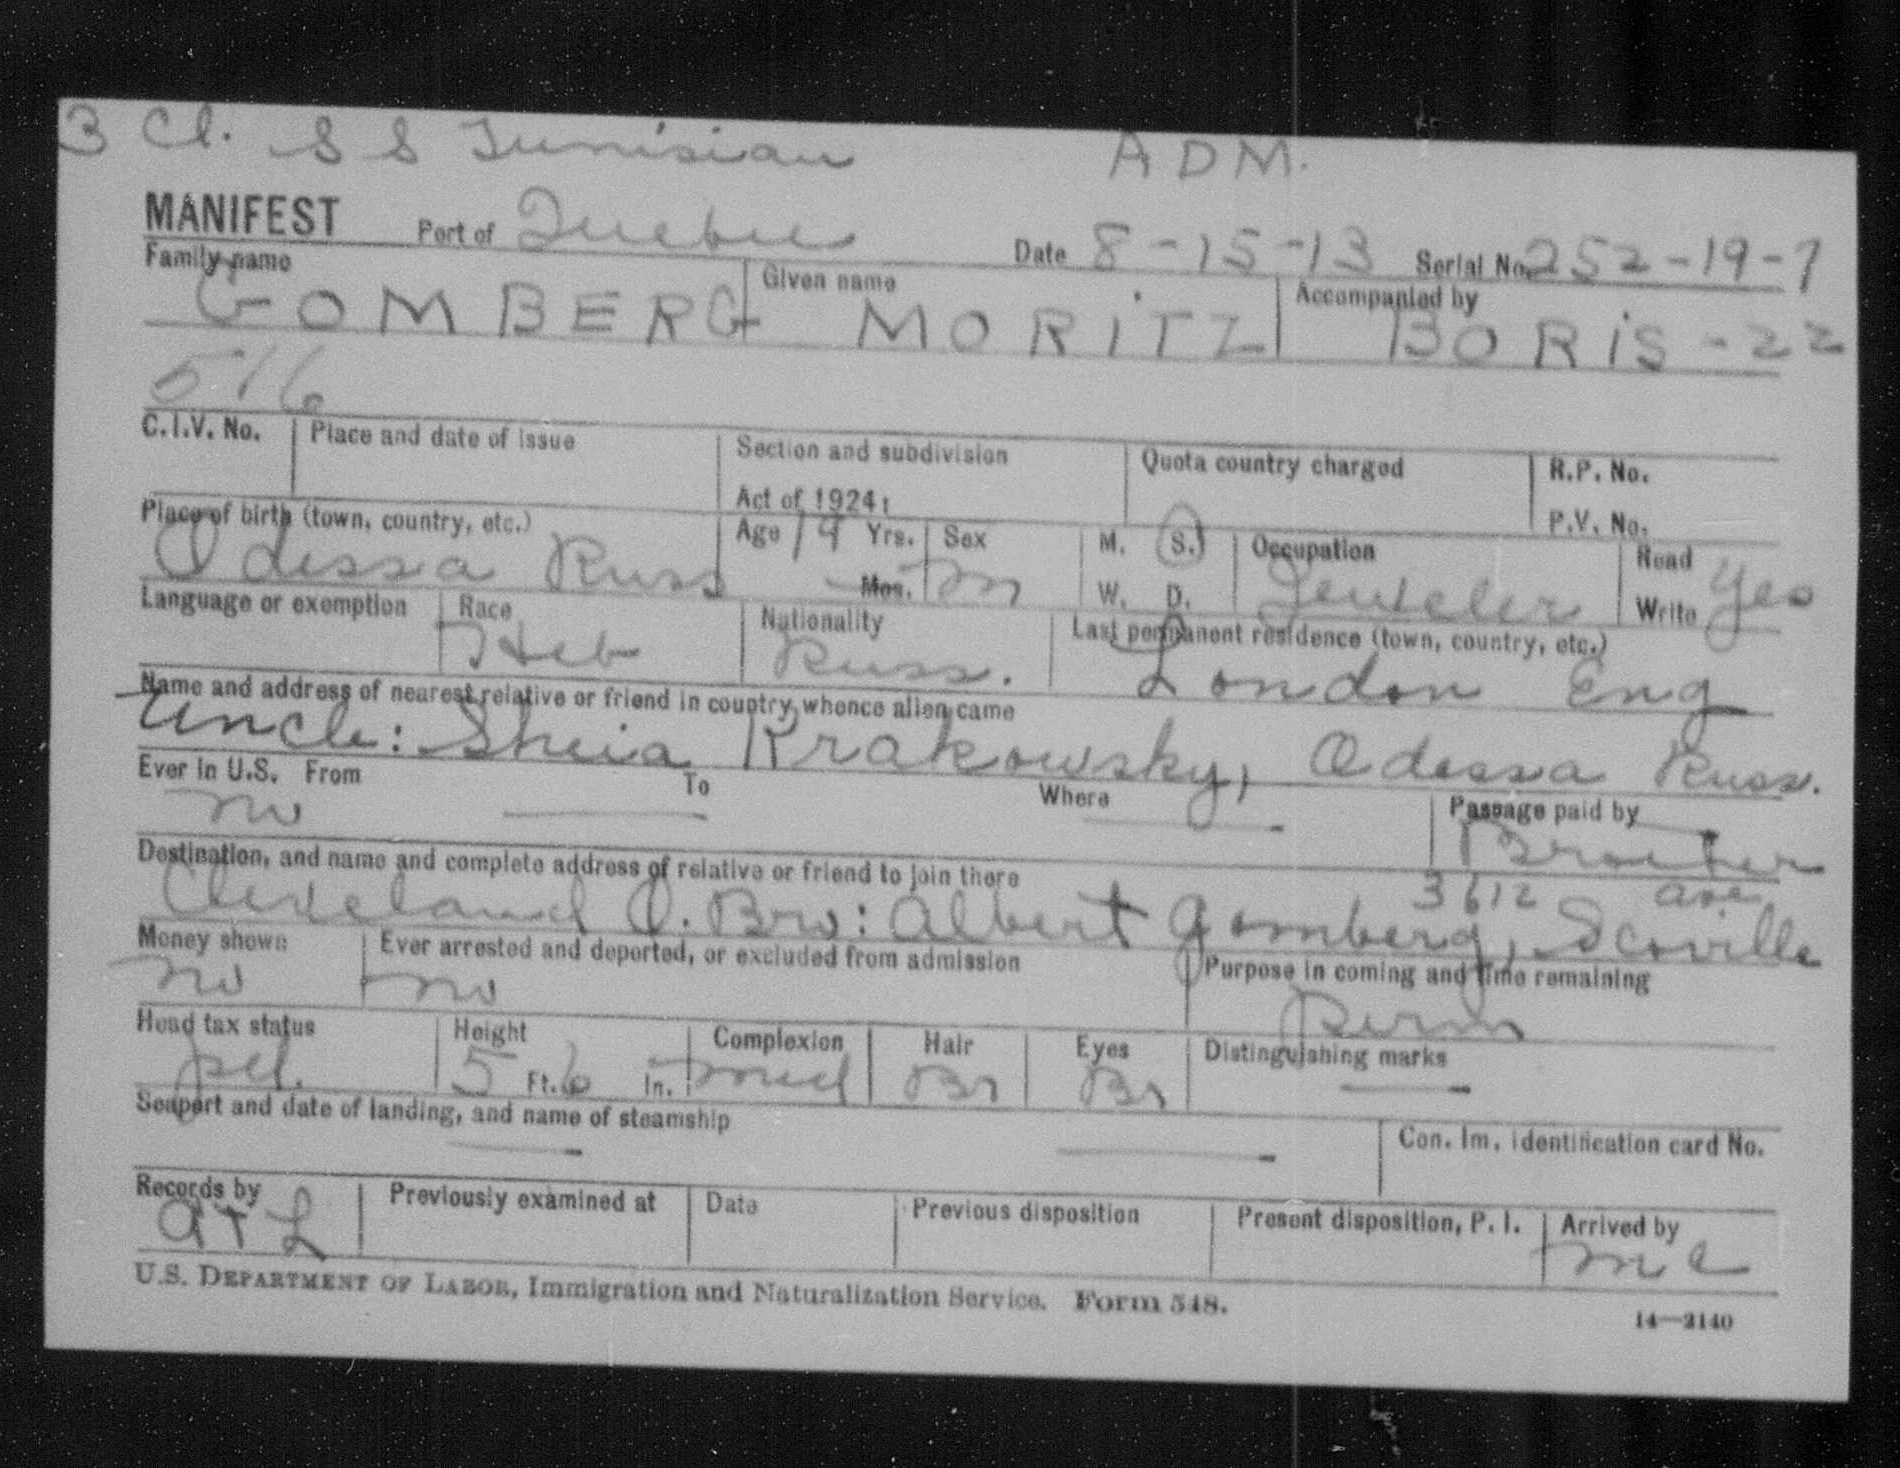 3 Cl. S S Tunisian ADM.
MANIFEST Port of Quebec Date 8-15-13 Serial No. 252-19-7
Family name Given name Accompanied by
GOMBERG MORITZ BORIS-22
516
C.I.V. No. Place and date of issue Section and subdivision Quota country charged R.P. No.
Act of 1924: P.V. No.
Place of birth (town, country, etc.) Age 19 Yrs. Sex M. S. Occupation Read
Odessa Russ Mos. M W. D. Jeweler Write Yes
Language or exemption Race Nationality Last permanent residence (town, country, etc.)
Heb Russ. London Eng
Name and address of nearest relative or friend in country whence alien came
Uncle: Sheia Krakowsky, Odessa Russ.
Ever in U.S. From To Where Passage paid by
no — — Brother
Destination, and name and complete address of relative or friend to join there
3612 ave
Cleveland O. Bro: Albert Gomberg, Scoville
Money shown Ever arrested and deported, or excluded from admission Purpose in coming and time remaining
no no Perm
Head tax status Height Complexion Hair Eyes Distinguishing marks
pd. 5 Ft. 6 In. med Br Br —
Seaport and date of landing, and name of steamship Con. Im. identification card No.
— —
Records by Previously examined at Date Previous disposition Present disposition, P. I. Arrived by
M C
U.S. DEPARTMENT OF LABOR, Immigration and Naturalization Service. Form 548.
14—2140